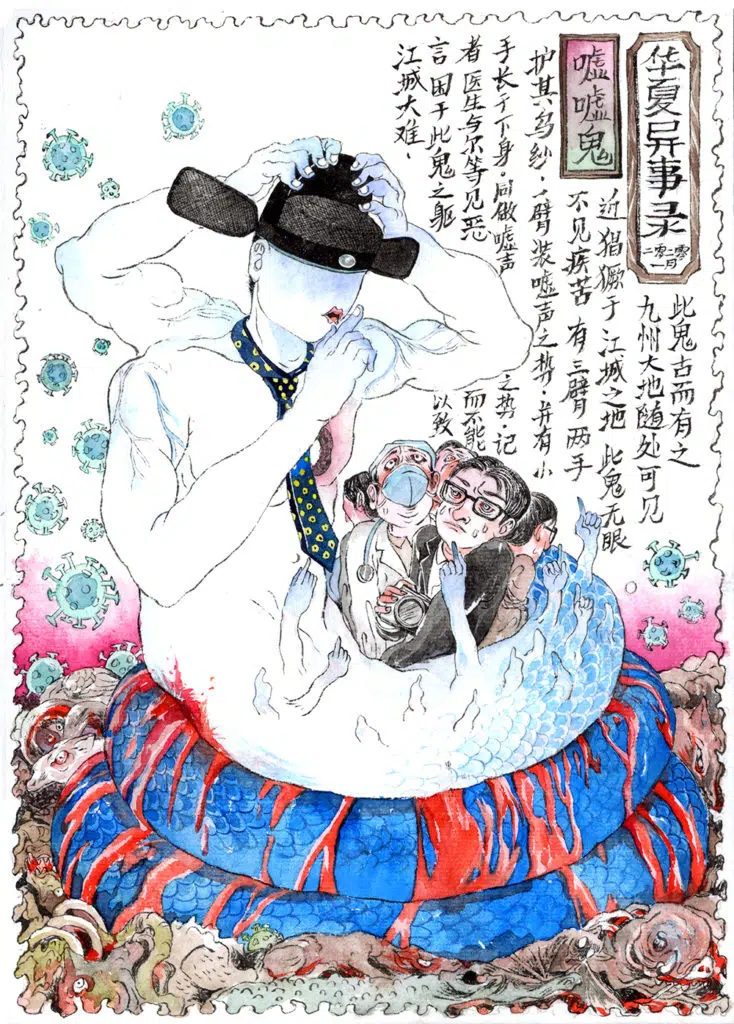 华夏异事录
嘘嘘鬼
此鬼古而有之
九州大地随处可见
近猖獗于江城之地 此鬼无眼
不见疾苦 有三臂两手
护其乌纱·一臂装嘘声之势·并有小
手长于下身·同做嘘声之势·记
者医生与尔等见恶而不能
言 困于此鬼之躯以致
江城大难·